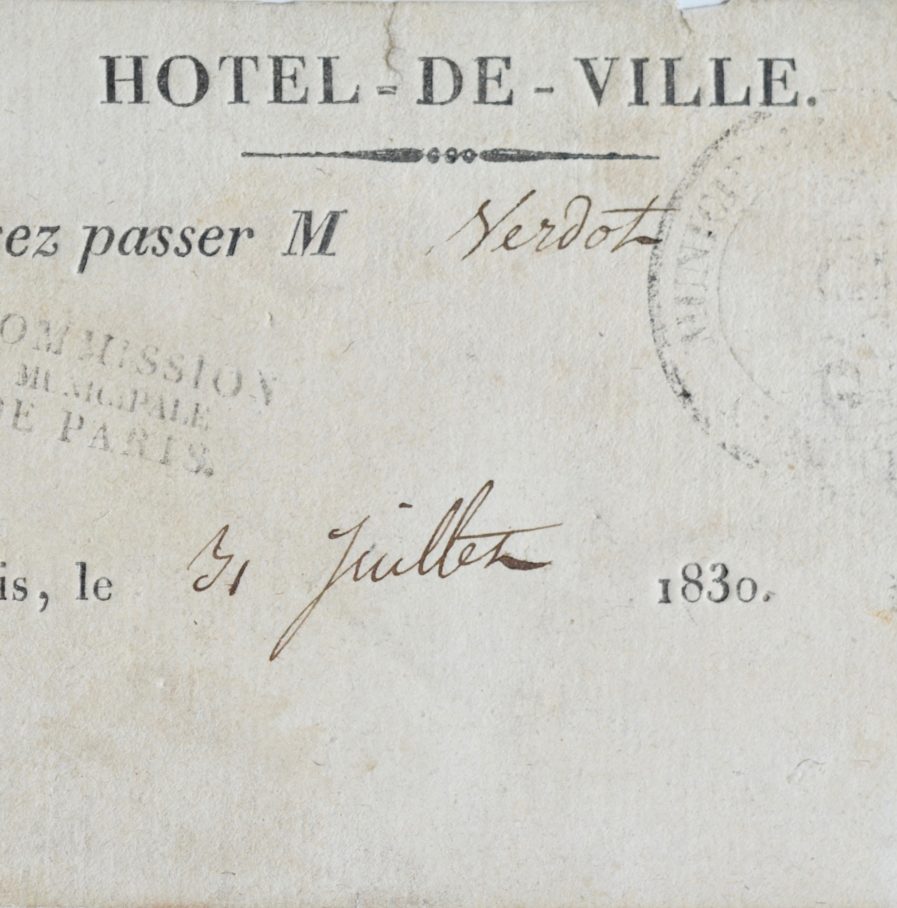 HOTEL-DE-VILLE.
sez passer M Verdot
MUNICIP
OMMISSION
MUNICIPALE
DE PARIS.
is, le 31 Juillet 1830.